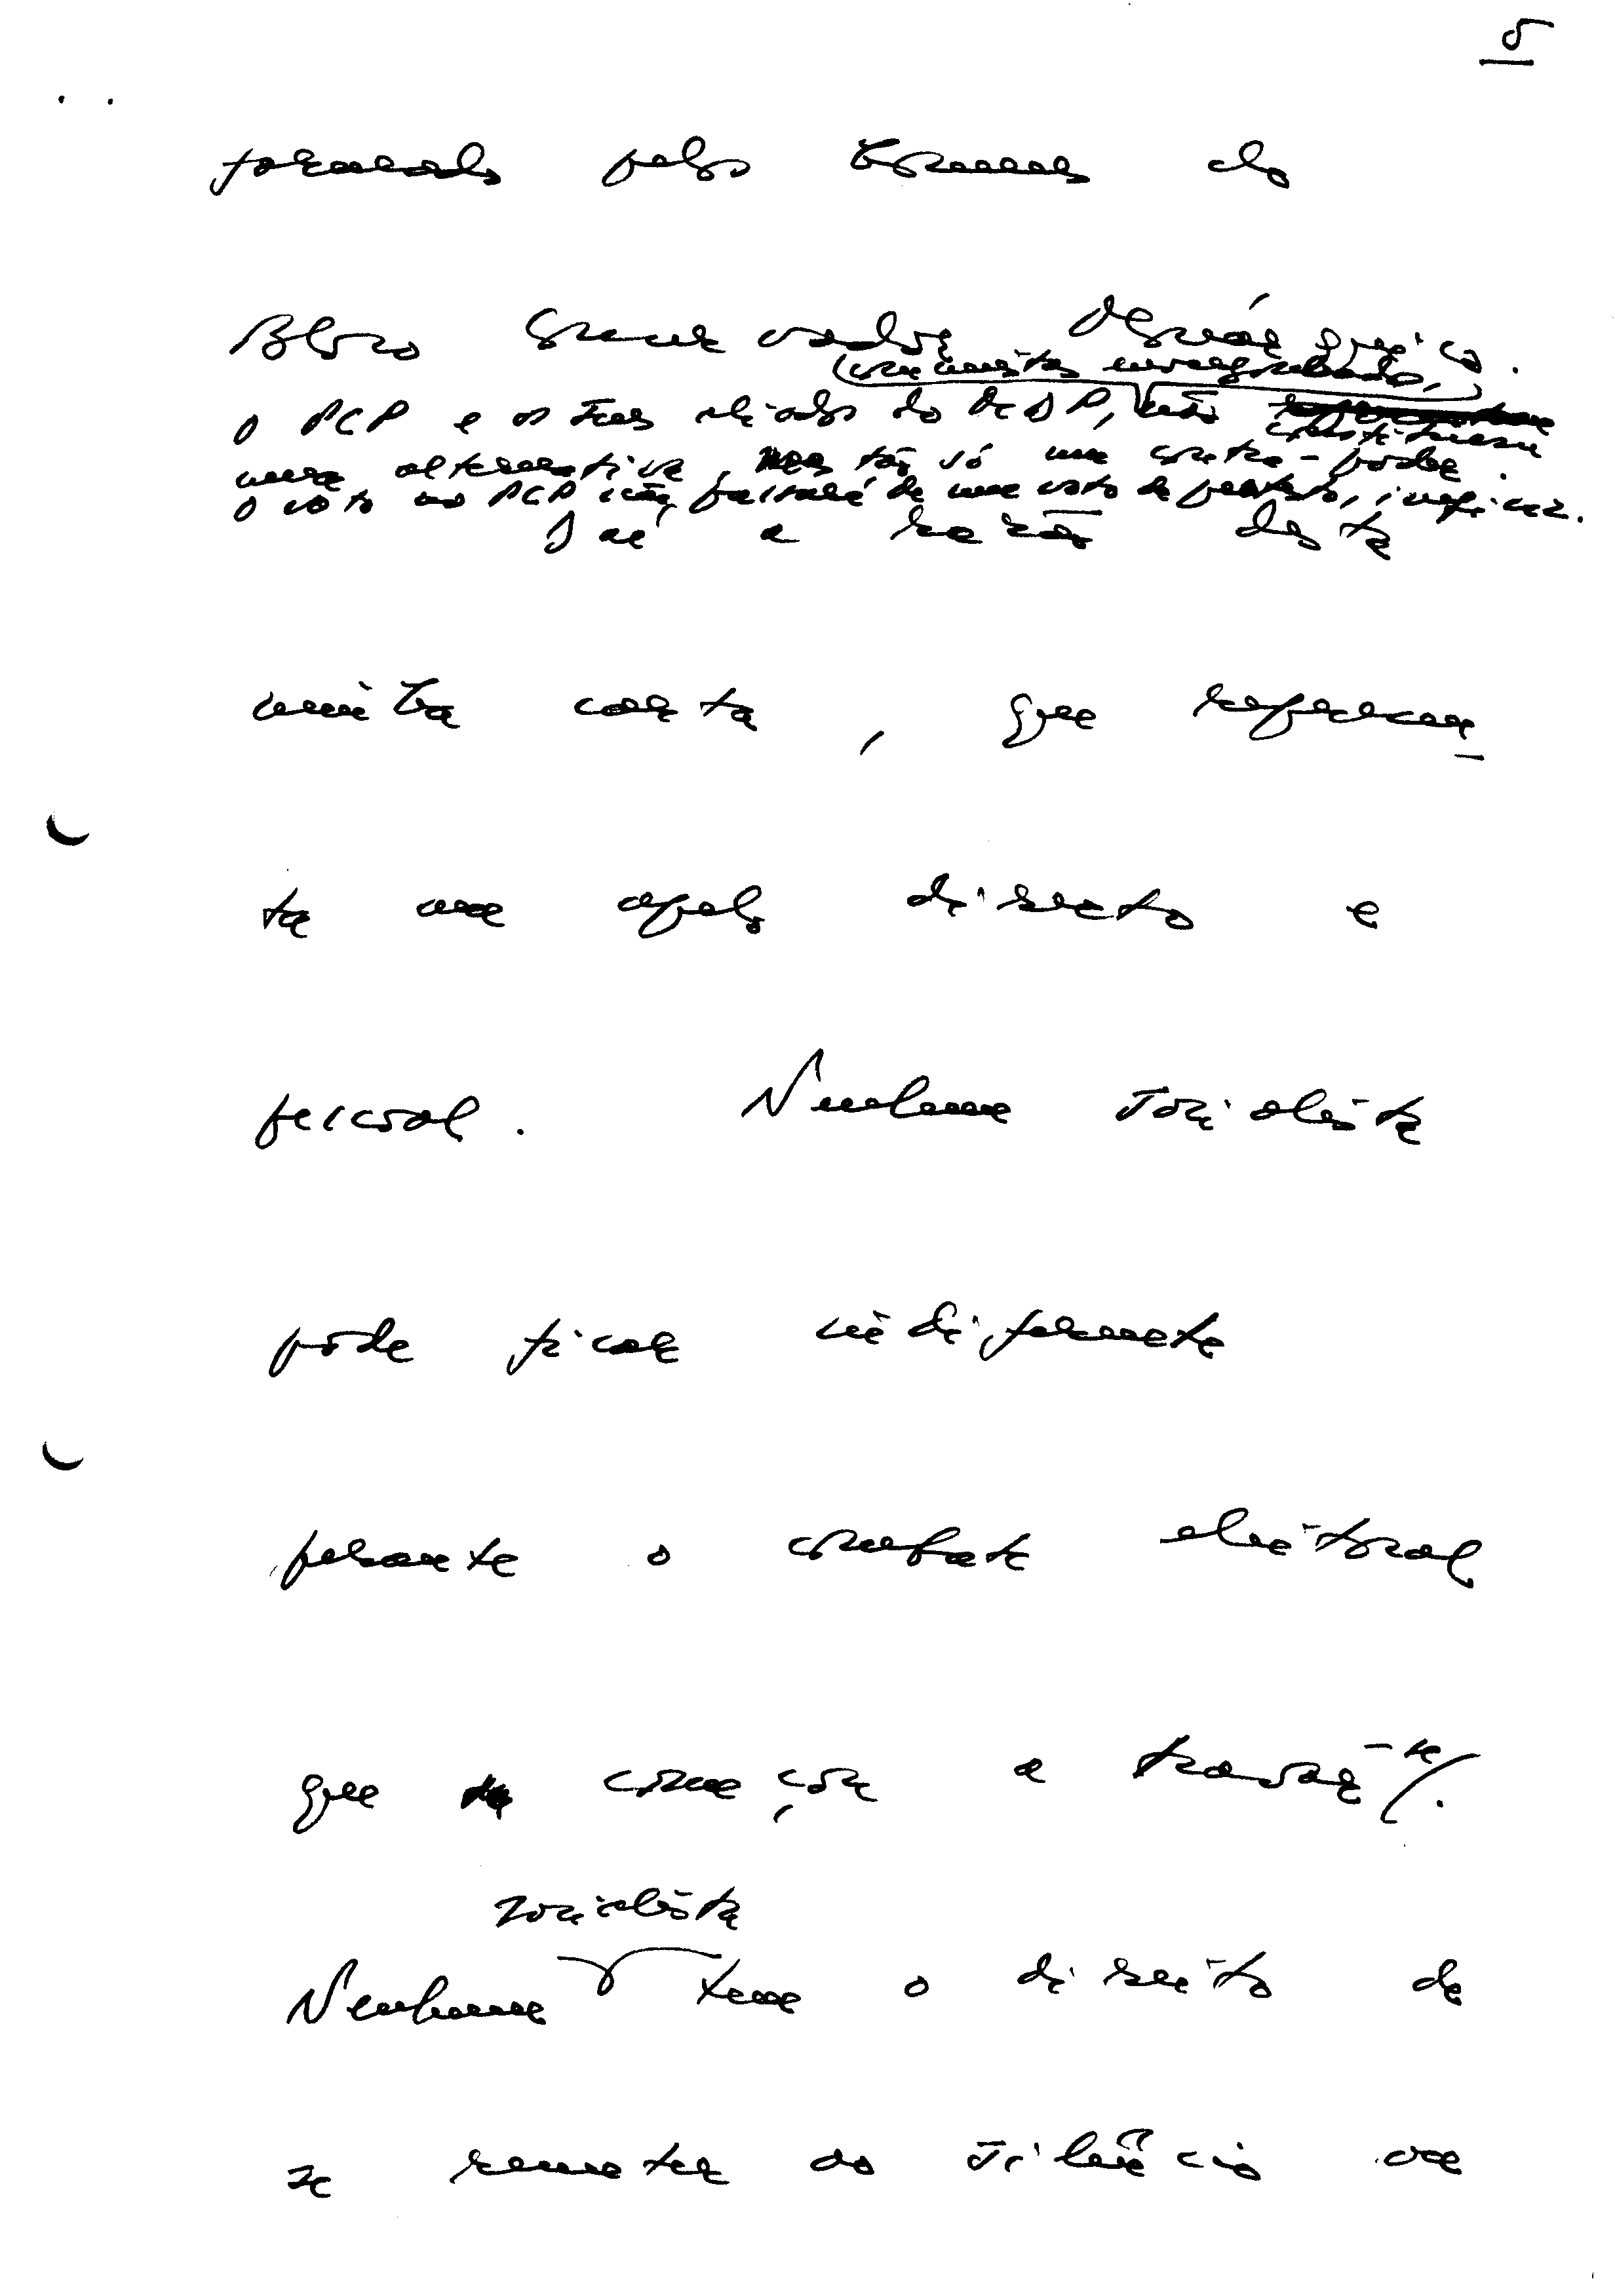 5
formado pelos homens do
Bloco Conservador Oligárquico.
(comunistas envergonhados,)
O PCP e os seus aliados do MDP, não
constituem
uma alternativa, mas tão só um contra-poder.
O voto no PCP não passará de um voto de protesto, ineficaz.
Daí a razão desta
minha carta, que represen-
ta um apelo directo e
pessoal. Nenhum socialista
pode ficar indiferente
perante o combate eleitoral
que começou a travar-se/.
socialista
Nenhum tem o direito de
se remeter ao silêncio ou